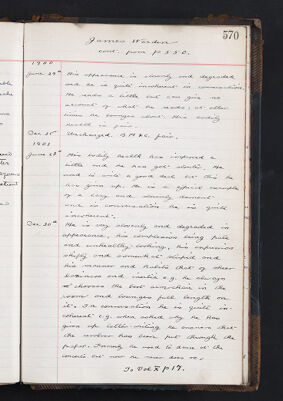 570
James Warden
cont. from p 550.
1900
June 29th His appearance is slovenly and degraded
and he is quite incoherent in conversation.
He reads a little but can give no
account of what he reads, at other
times he lounges about. His bodily
health is fair.
Dec 25th Unchanged. B.M. & C. fair.
1901
June 28th His bodily health has improved a
little and he has got stouter. He
used to write a good deal but this he
has given up. He is a typical example
of a lazy and slovenly dement
and in conversation he is quite
incoherent.
Dec. 30th He is very slovenly and degraded in
appearance, his complexion being pale
and unhealthy looking, his expression
shifty and somewhat stupid and
his manner and habits that of sheer
laziness and inertia e.g. he always
chooses the best armchair in the
room and lounges full length on
it. In conversation he is quite in-
coherent e.g. when asked why he has
given up letter writing he answers that
the revolver has been put through the
paper. Formerly he used to dance at the
but now he never does so.
To Vol X p 17.